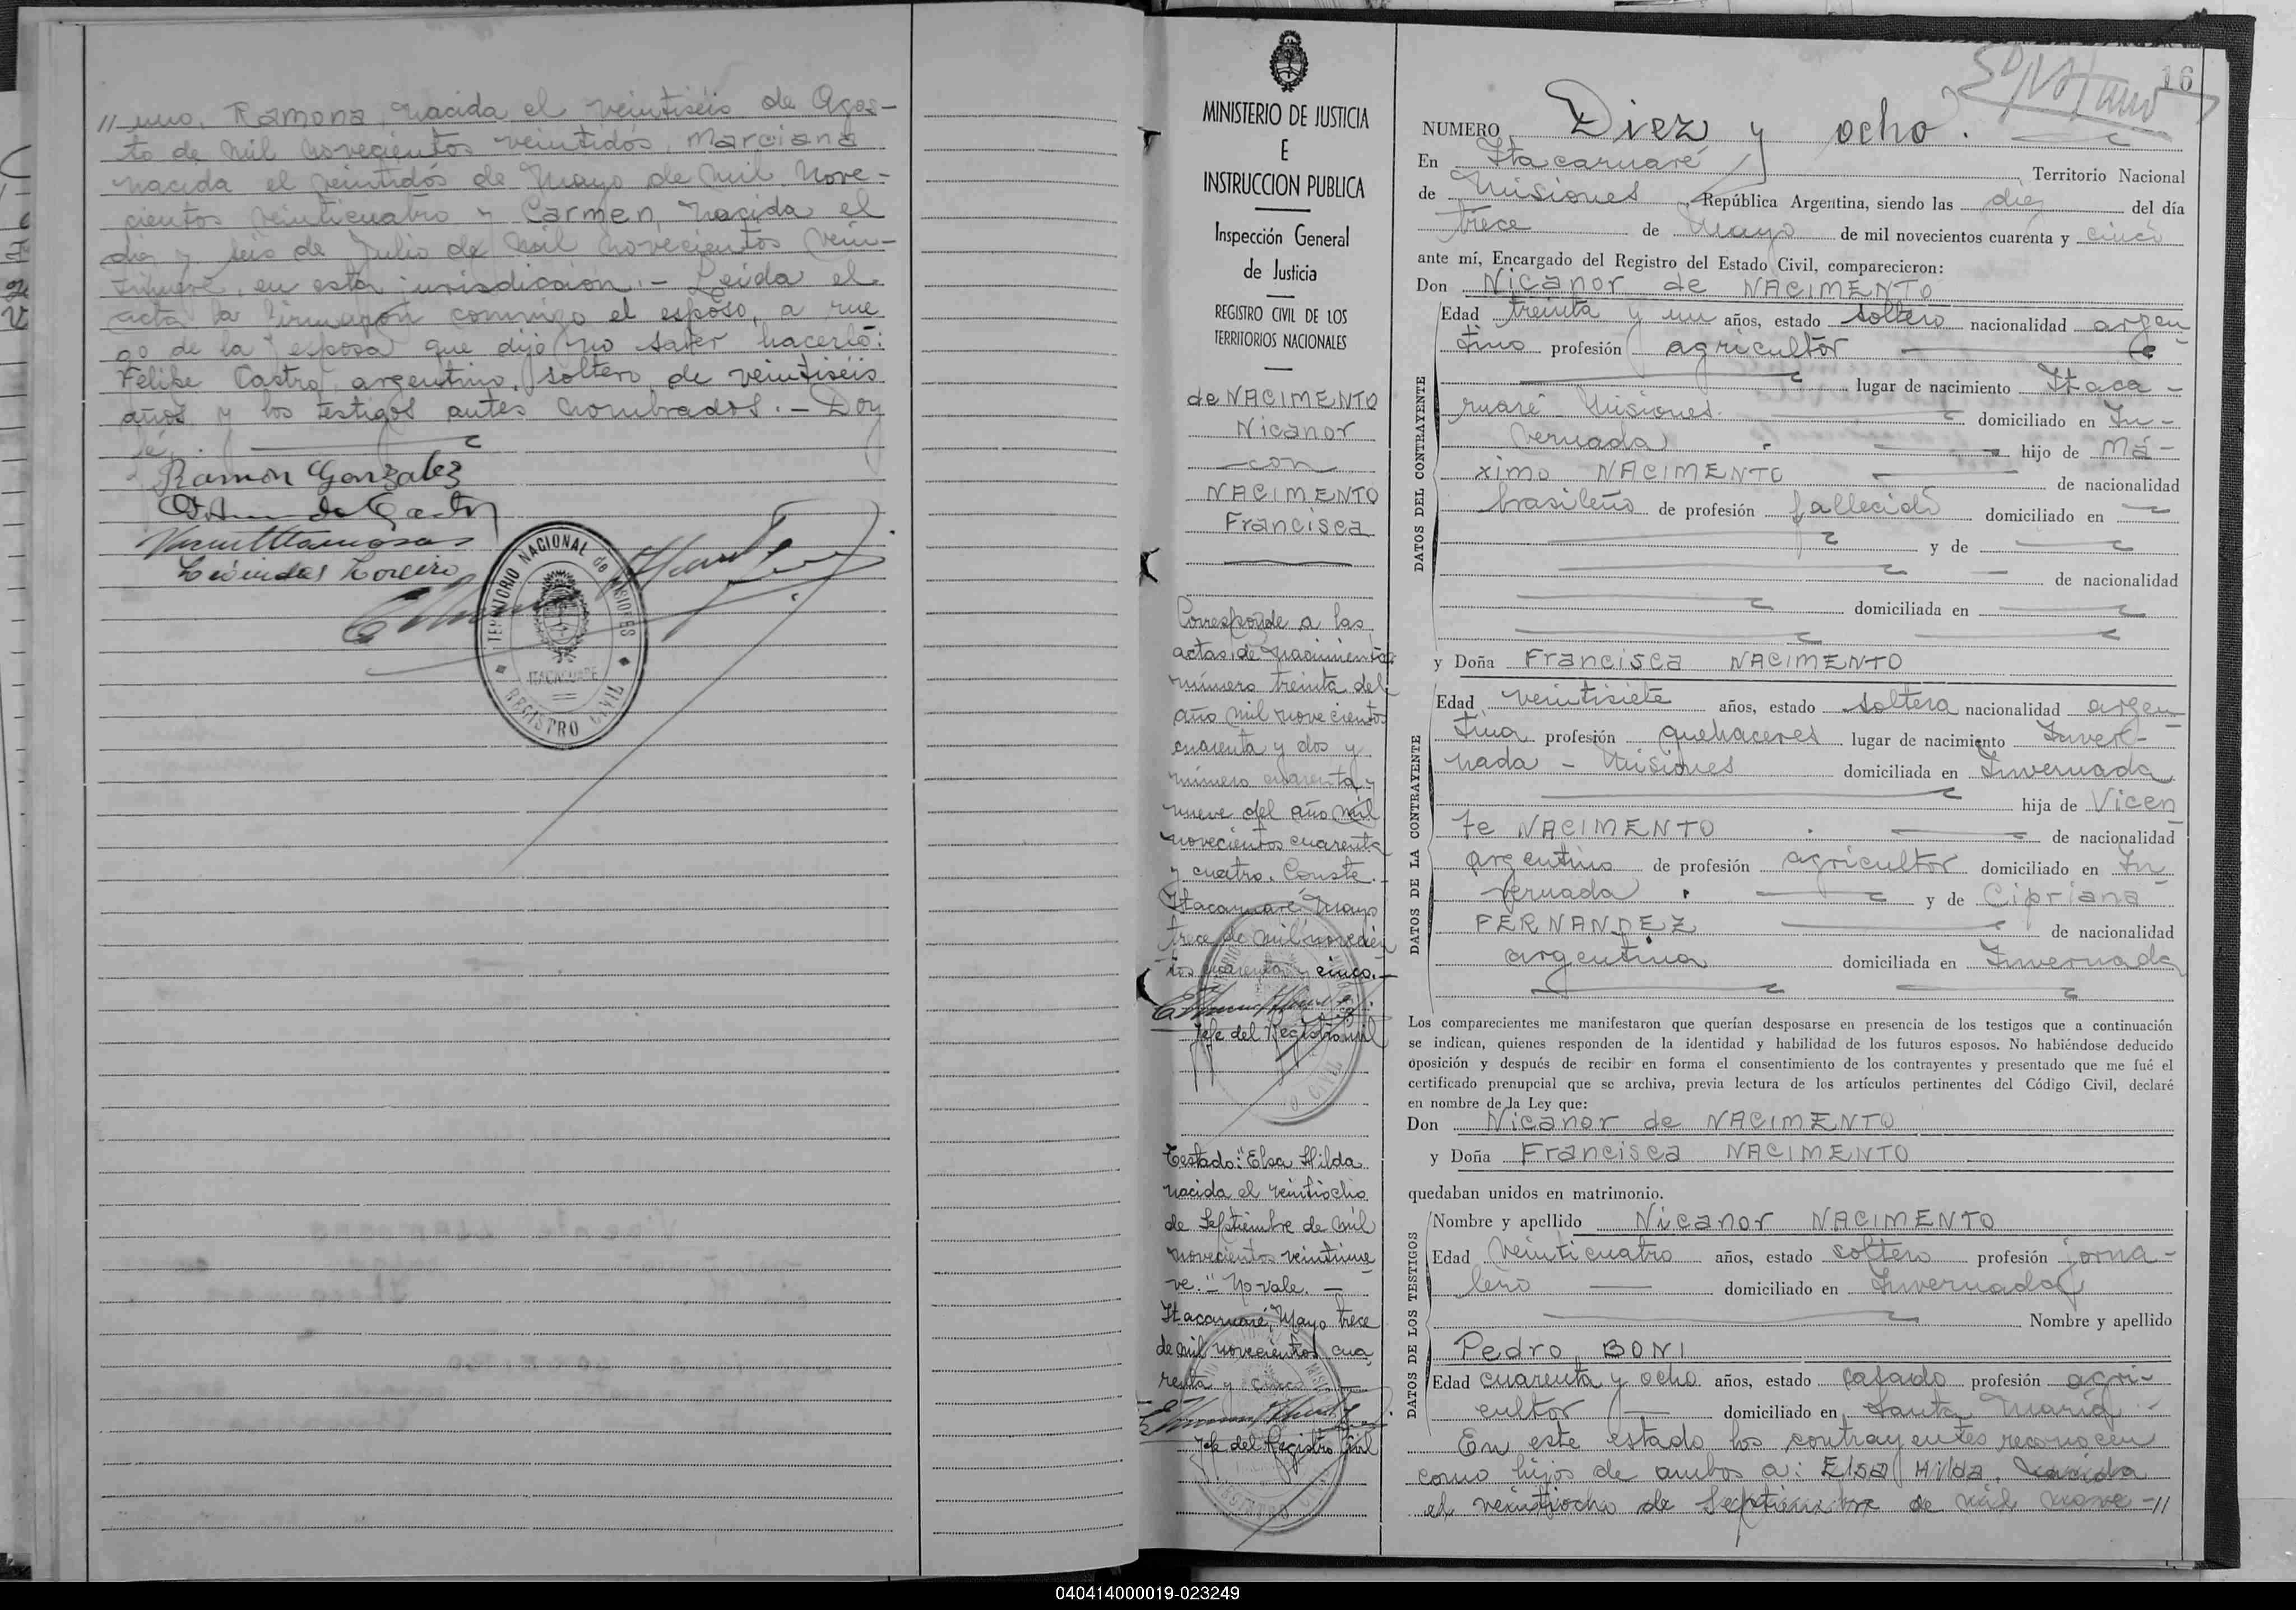 // uno, Ramona, nacida el veintiséis de Agos-
to de mil novecientos veintidós, Marciana
nacida el veintidós de Mayo de mil nove-
cientos veinticuatro y Carmen, nacida el
diez y seis de Julio de mil novecientos vein-
tinueve, en esta jurisdicción.- Leída el
acta la firmaron conmigo el esposo, a rue
go de la esposa que dijo no saber hacerlo:
Felipe Castro, argentino, soltero de veintiséis
años y los testigos antes nombrados.- Doy
fé.
Ramón Gonzalez
Leónidas Loreiro
TERRITORIO NACIONAL de MISIONES
ITACARUARE
REGISTRO CIVIL
MINISTERIO DE JUSTICIA
E
INSTRUCCION PUBLICA
Inspección General
de Justicia
REGISTRO CIVIL DE LOS
TERRITORIOS NACIONALES
de NACIMENTO
Nicanor
con
NACIMENTO
Francisca
Corresponde a las
actas de nacimientos
número treinta del
año mil novecientos
cuarenta y dos y
número cuarenta y
nueve del año mil
novecientos cuarenta
y cuatro. Conste.-
Itacaruaré, Mayo
trece de mil novecien
tos cuarenta y cinco.-
Jefe del Registro Civil
Testado: "Elsa Hilda
nacida el veintiocho
de Septiembre de mil
novecientos veintinue
ve." No vale. -
Itacaruaré, Mayo trece
de mil novecientos cua
renta y cinco
Jefe del Registro Civil
16
NUMERO Diez y ocho.
En Itacaruaré Territorio Nacional
de Misiones, República Argentina, siendo las diez del día
trece de Mayo de mil novecientos cuarenta y cinco
ante mí, Encargado del Registro del Estado Civil, comparecieron:
Don Nicanor de NACIMENTO
DATOS DEL CONTRAYENTE
Edad treinta y un años, estado soltero nacionalidad argen
tino profesión agricultor
lugar de nacimiento Itaca-
ruaré Misiones. domiciliado en In-
vernada hijo de Má-
ximo NACIMENTO de nacionalidad
brasileño de profesión fallecido domiciliado en
y de
de nacionalidad
domiciliada en
y Doña Francisca NACIMENTO
DATOS DE LA CONTRAYENTE
Edad veintisiete años, estado soltera nacionalidad argen
tina profesión quehaceres lugar de nacimiento Inver-
nada - Misiones domiciliada en Invernada
hija de Vicen
te NACIMENTO de nacionalidad
argentino de profesión agricultor domiciliado en In
vernada y de Cipriana
FERNANDEZ de nacionalidad
argentina domiciliada en Invernada
Los comparecientes me manifestaron que querían desposarse en presencia de los testigos que a continuación
se indican, quienes responden de la identidad y habilidad de los futuros esposos. No habiéndose deducido
oposición y después de recibir en forma el consentimiento de los contrayentes y presentado que me fué el
certificado prenupcial que se archiva, previa lectura de los artículos pertinentes del Código Civil, declaré
en nombre de la Ley que:
Don Nicanor de NACIMENTO
y Doña Francisca NACIMENTO
quedaban unidos en matrimonio.
DATOS DE LOS TESTIGOS
Nombre y apellido Nicanor NACIMENTO
Edad veinticuatro años, estado soltero profesión jorna-
lero domiciliado en Invernada
Nombre y apellido
Pedro BONI
Edad cuarenta y ocho años, estado casado profesión agri-
cultor domiciliado en Santa María
En este estado los contrayentes reconocen
como hijos de ambos a: Elsa Hilda, nacida
el veintiocho de Septiembre de mil nove-//
040414000019-023249